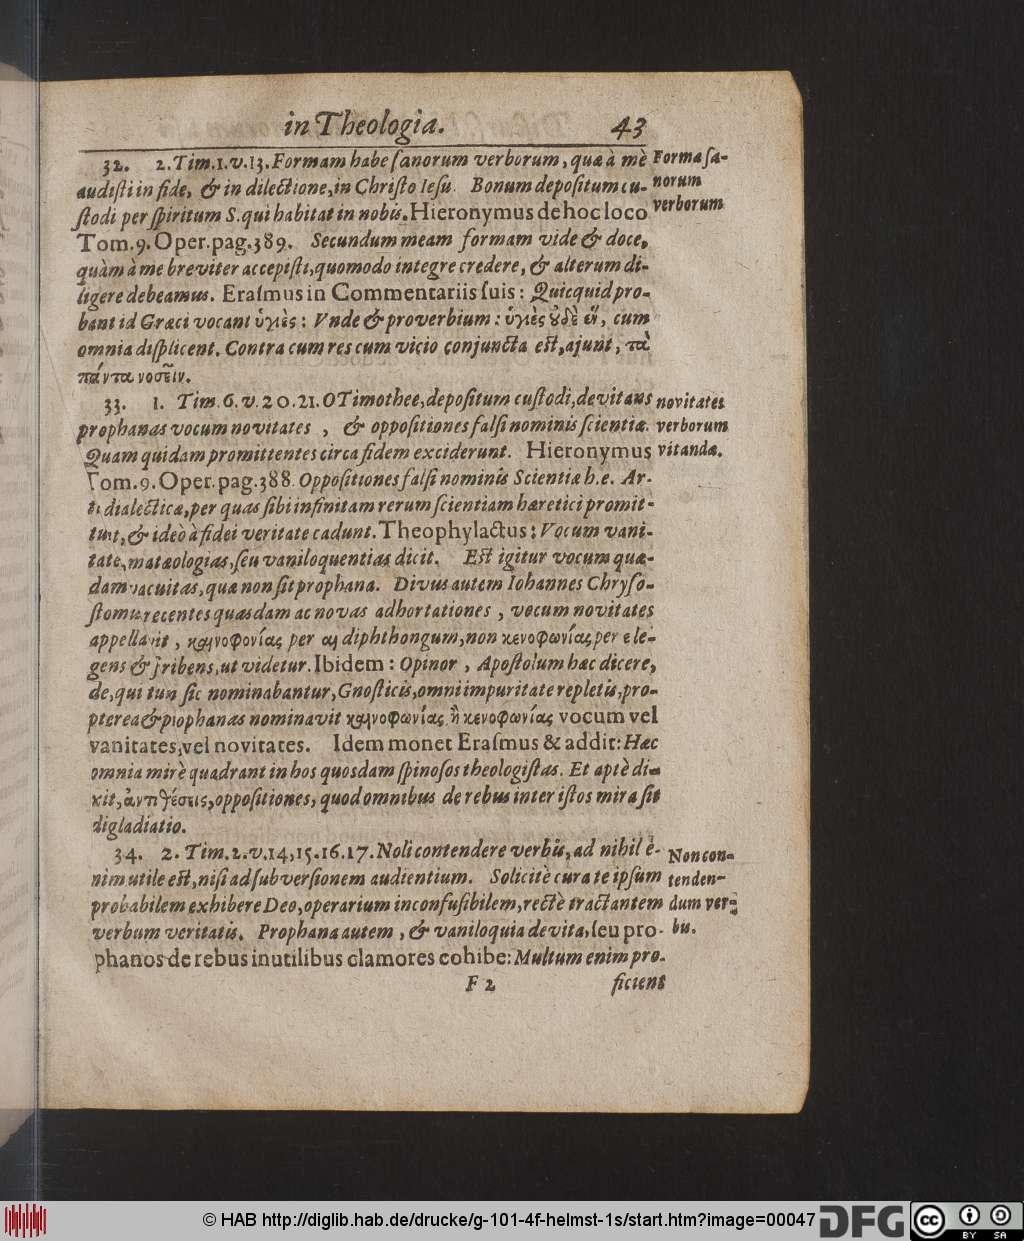 in Theologia. 43
32. 2. Tim. 1. v. 13. Formam habe sanorum verborum, quæ à mè
audisti in fide, & in dilectione, in Christo Iesu. Bonum depositum cu-
stodi per spiritum S. qui habitat in nobis. Hieronymus de hoc loco
Tom. 9. Oper. pag. 389. Secundum meam formam vide & doce,
quàm à me breviter accepisti, quomodo integre credere, & alterum di-
ligere debeamus. Erasmus in Commentariis suis: Quicquid pro-
bant id Græci vocant ὑγιὲς: Vnde & proverbium: ὑγιὲς ȣ̓δὲ ἓν, cum
omnia displicent. Contra cum res cum vicio conjuncta est, ajunt, τὰ
πάντα νοσεῖν.
Forma sa-
norum
verborum
33. 1. Tim. 6. v. 20. 21. O Timothee, depositum custodi, devitans
prophanas vocum novitates, & oppositiones falsi nominis scientiæ.
Quam quidam promittentes circa fidem exciderunt. Hieronymus
Tom. 9. Oper. pag. 388. Oppositiones falsi nominis Scientiæ h. e. Ar-
ti dialecticæ, per quas sibi infinitam rerum scientiam hæretici promit-
tunt, & ideò à fidei veritate cadunt. Theophylactus: Vocum vani-
tate, matæologias, seu vaniloquentias dicit. Est igitur vocum quæ-
dam vacuitas, quæ non sit prophana. Divus autem Iohannes Chryso-
stomus recentes quasdam ac novas adhortationes, vocum novitates
appellavit, καινοφονίας per αι diphthongum, non κενοφωνίας per ε le-
gens & scribens, ut videtur. Ibidem: Opinor, Apostolum hæc dicere,
de, qui tum sic nominabantur, Gnosticis, omni impuritate repletis, pro-
pterea & prophanas nominavit καινοφωνίας ἢ κενοφωνίας vocum vel
vanitates, vel novitates. Idem monet Erasmus & addit: Hæc
omnia mirè quadrant in hos quosdam spinosos theologistas. Et aptè di-
xit, ἀντιθέσεις, oppositiones, quod omnibus de rebus inter istos mira sit
digladiatio.
novitates
verborum
vitandæ.
34. 2. Tim. 2. v. 14, 15. 16. 17. Noli contendere verbis, ad nihil e-
nim utile est, nisi ad subversionem audientium. Solicitè cura te ipsum
probabilem exhibere Deo, operarium inconfusibilem, rectè tractantem
verbum veritatis. Prophana autem, & vaniloquia devita, seu pro-
phanos de rebus inutilibus clamores cohibe: Multum enim pro-
Non con-
tenden-
dum ver-
bis.
F 2 ficient
© HAB http://diglib.hab.de/drucke/g-101-4f-helmst-1s/start.htm?image=00047
DFG
cc BY SA